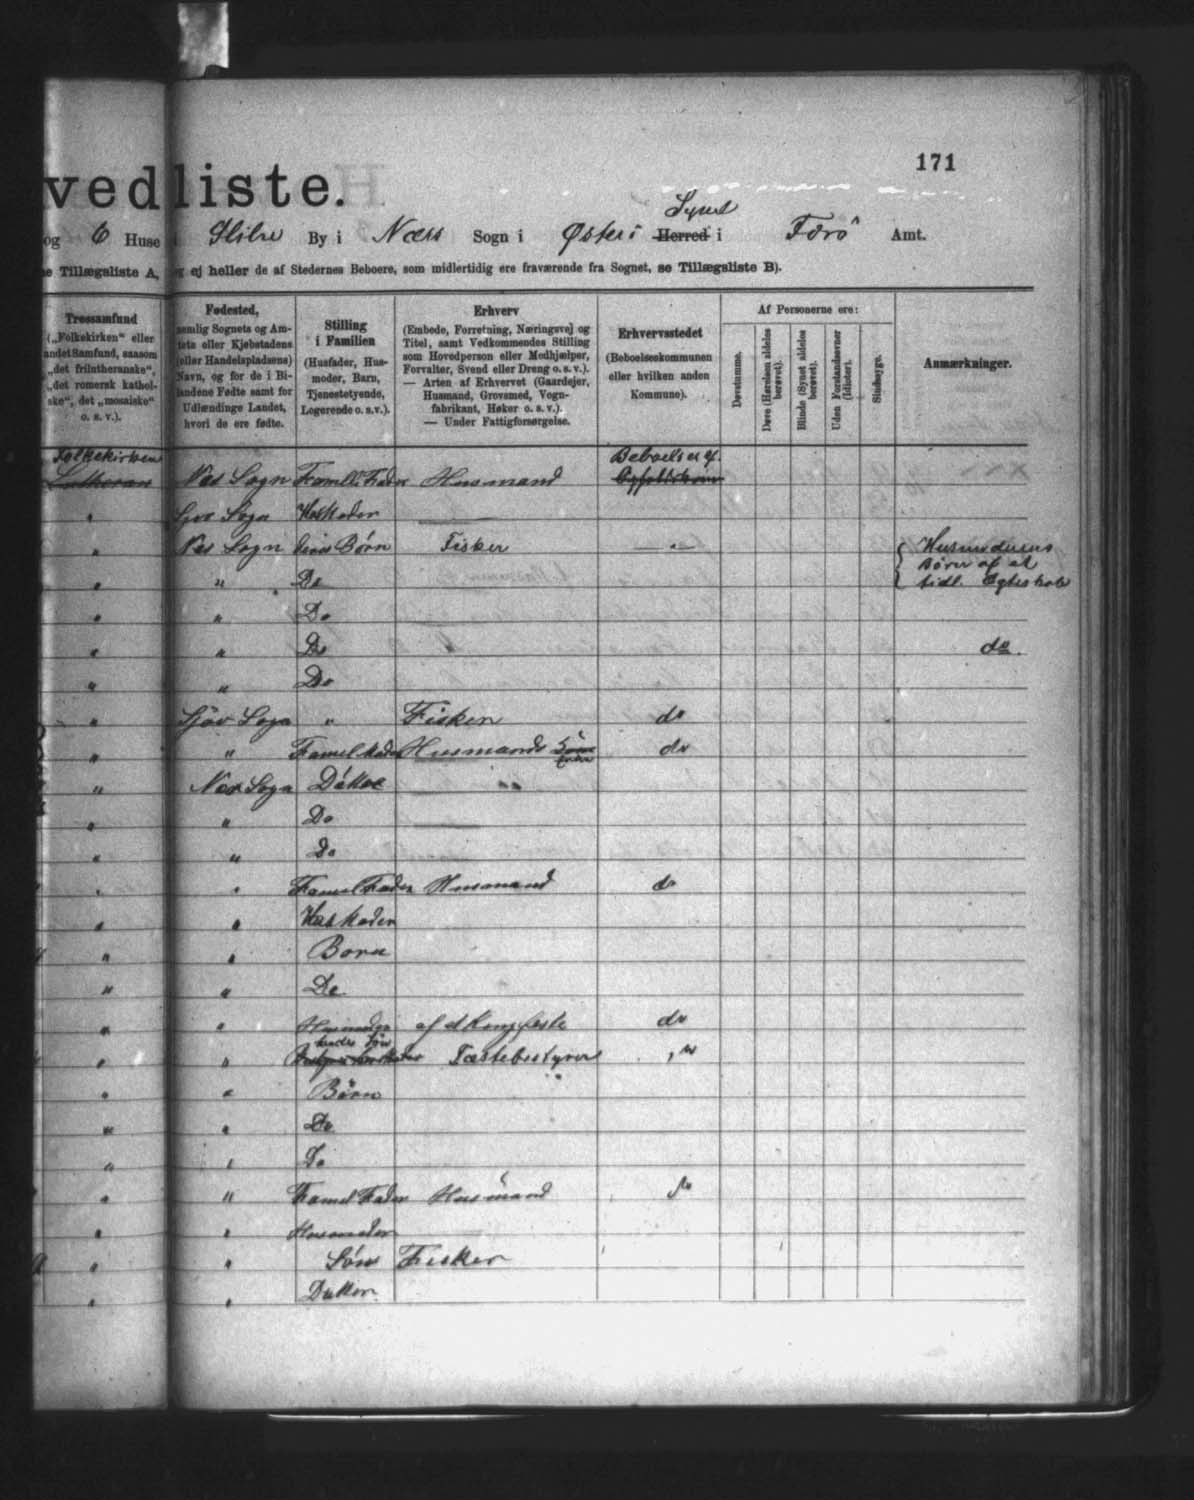 171
vedliste.
og 6 Huse i Glibre By i Næss Sogn i Østerö Herred Syssel i Færö Amt.
e Tillægsliste A, og ej heller de af Stedernes Beboere, som midlertidig ere fraværende fra Sognet, se Tillægsliste B).
Trossamfund
(„Folkekirken“ eller
andet Samfund, saasom
„det frilutheranske“,
„det romersk kathol-
ske“, det „mosaiske“
o. s. v.).
Fødested,
nemlig Sognets og Am-
tets eller Kjøbstadens
(eller Handelspladsens)
Navn, og for de i Bi-
landene Fødte samt for
Udlændinge Landet,
hvori de ere fødte.
Stilling
i Familien
(Husfader, Hus-
moder, Barn,
Tjenestetyende,
Logerende o. s. v.).
Erhverv
(Embede, Forretning, Næringsvej og
Titel, samt Vedkommendes Stilling
som Hovedperson eller Medhjælper,
Forvalter, Svend eller Dreng o. s. v.).
— Arten af Erhvervet (Gaardejer,
Husmand, Grovsmed, Vogn-
fabrikant, Høker o. s. v.).
— Under Fattigforsørgelse.
Erhvervsstedet
(Beboelseskommunen
eller hvilken anden
Kommune).
Af Personerne ere:
Døvstumme.
Døve (Hørelsen aldeles
berøvet).
Blinde (Synet aldeles
berøvet).
Uden Forstandsevner
(Idioter).
Sindssyge.
Anmærkninger.
Folkekirken Beboelses
Lutheran Næs Sogn Famili Fader Husmand
" Sjov Sogn Husmoder
" Næs Sogn deres Børn Fisker — " — Husmoderens
Børn af et
" " Do tidl. Egteskab
" " Do
" " Do do.
" " Do
" Sjöv Sogn " Fisker do
" " Famel Moder Husmands do
" Næs Sogn Döttre "
" " Do
" " Do
" " Famel Fader Husmand do
" " Husmoder
" " Born
" " Do
" " Husmoder af d Kongsfæste do
hendes Sön
" " Fæstebestyrer "
" " Börn
" " Do
" " Do
" " Famel Fader Husmand do
" " Husmoder
" " Sön Fisker
" " Datter